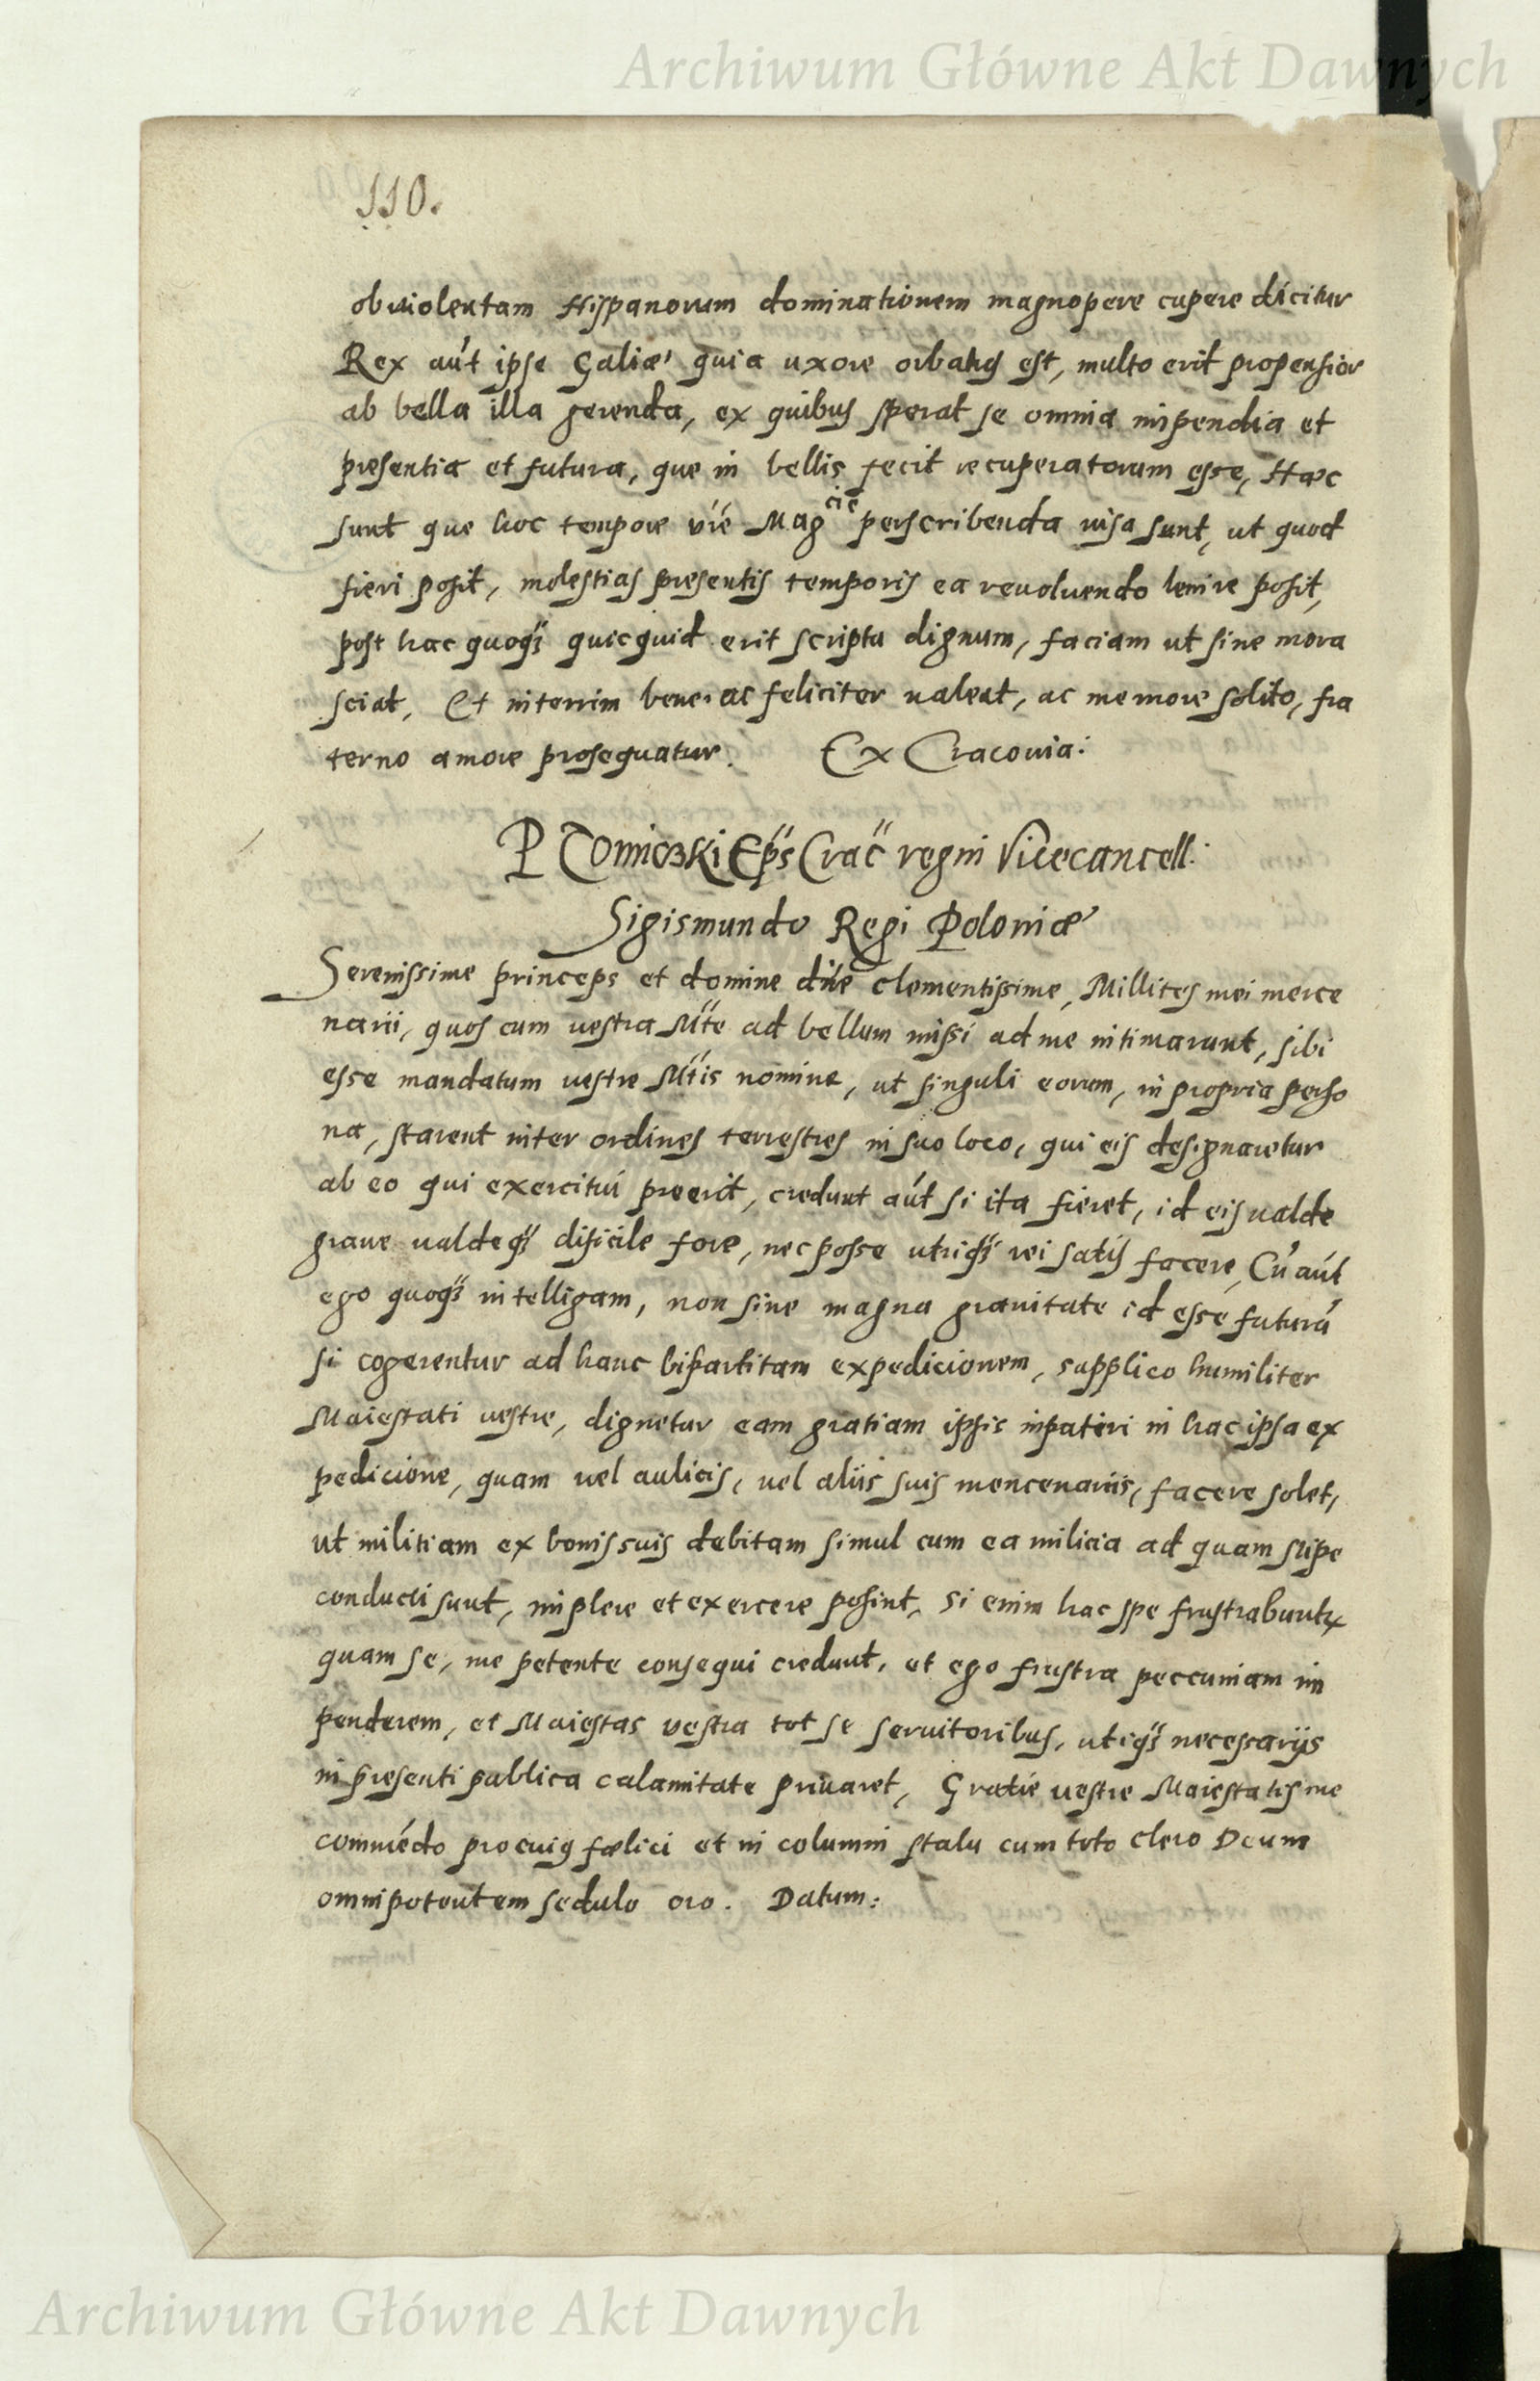 Archiwum Główne Akt Dawnych
110.
obuiolentam Hispanorum dominationem magnopere cupere dicitur
Rex aut́ ipse Galiæ quia uxore orbatus est, multo erit propensior
ab bella illa gerenda, ex quibus sperat se omnia inpendia et
presentia et futura, que in bellis fecit recuperatorum esse, Hæc
sunt que hoc tempore vr̃e Mag^cie perscribenda uisa sunt, ut quod
fieri posit, molestias presentis temporis ea reuoluendo lenire posit,
post hac quoq3 quicquid erit scriptu dignum, faciam ut sine mora
sciat, Et interim bene ac feliciter ualeat, ac me more solito, fra
terno amore prosequatur. Ex Cracouia:
P Tomiczki Ep̃s Crac̃ regni Vicecancell:
Sigismundo Regi Poloniæ
Serenissime princeps et domine dñe clementissime, Millites mei merce
narii, quos cum uestra Mt̃e ad bellum missi ad me intimarunt, sibi
esse mandatum uestre Mt̃is nomine, ut singuli eorum, in propria perso
na, starent inter ordines terrestres in suo loco, qui eis designaretur
ab eo qui exercitui preerit, credunt aút si ita fieret, id eis ualde
graue ualdeq3 dificile fore, nec posse utriq3 rei satis facere, Cũ aút
ego quoq3 intelligam, non sine magna grauitate id esse futurũ
si cogerentur ad hanc bipartitam expedicionem, supplico humiliter
Maiestati uestre, dignetur eam gratiam ipsis inpatiri in hac ipsa ex
pedicione, quam uel aulicis, uel aliis suis mencenariis, facere solet,
ut militiam ex bonis suis debitam simul cum ea milicia ad quam stipe
conducti sunt, implere et exercere posint, si enim hac spe frustrabunt̃
quam se, me petente consequi credunt, et ego frustra peccuniam im
penderem, et Maiestas vestra tot se seruitoribus, utiq3 necessariis
in presenti publica calamitate priuaret, Gratie uestre Maiestatis me
comẽdo pro cuius fælici et in columni statu cum toto clero Deum
omnipotentem sedulo oro. Datum:
Archiwum Główne Akt Dawnych